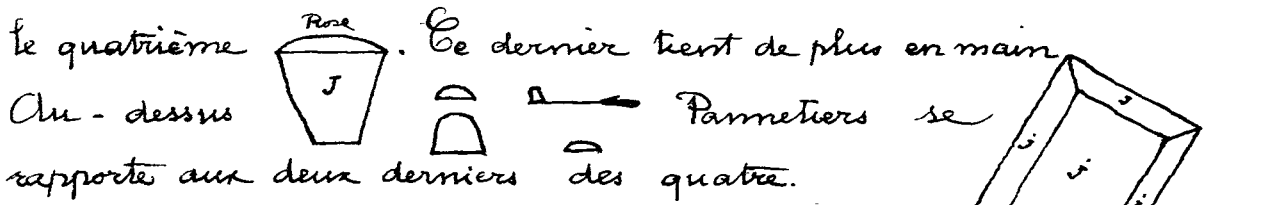 Rose
le quatrième J. Ce dernier tient de plus en main
Au-dessus Pannetiers se
rapporte aux deux derniers des quatre.
j
j
j
j